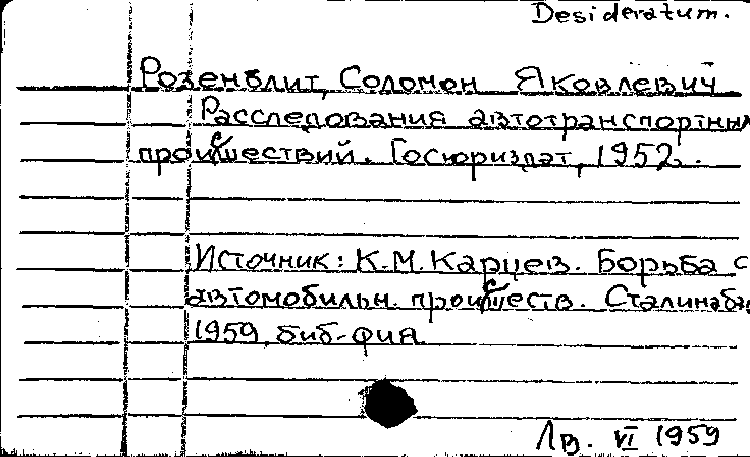 Desideratum.
Розенблит, Соломон Яковлевич
Расследования автотранспортных
происшествий. Госюриздат, 1952.
Источник: К.М. Карцев. Борьба с
автомобильн. происшеств. Сталинаба
1959, биб-фия
Лв. VI 1959